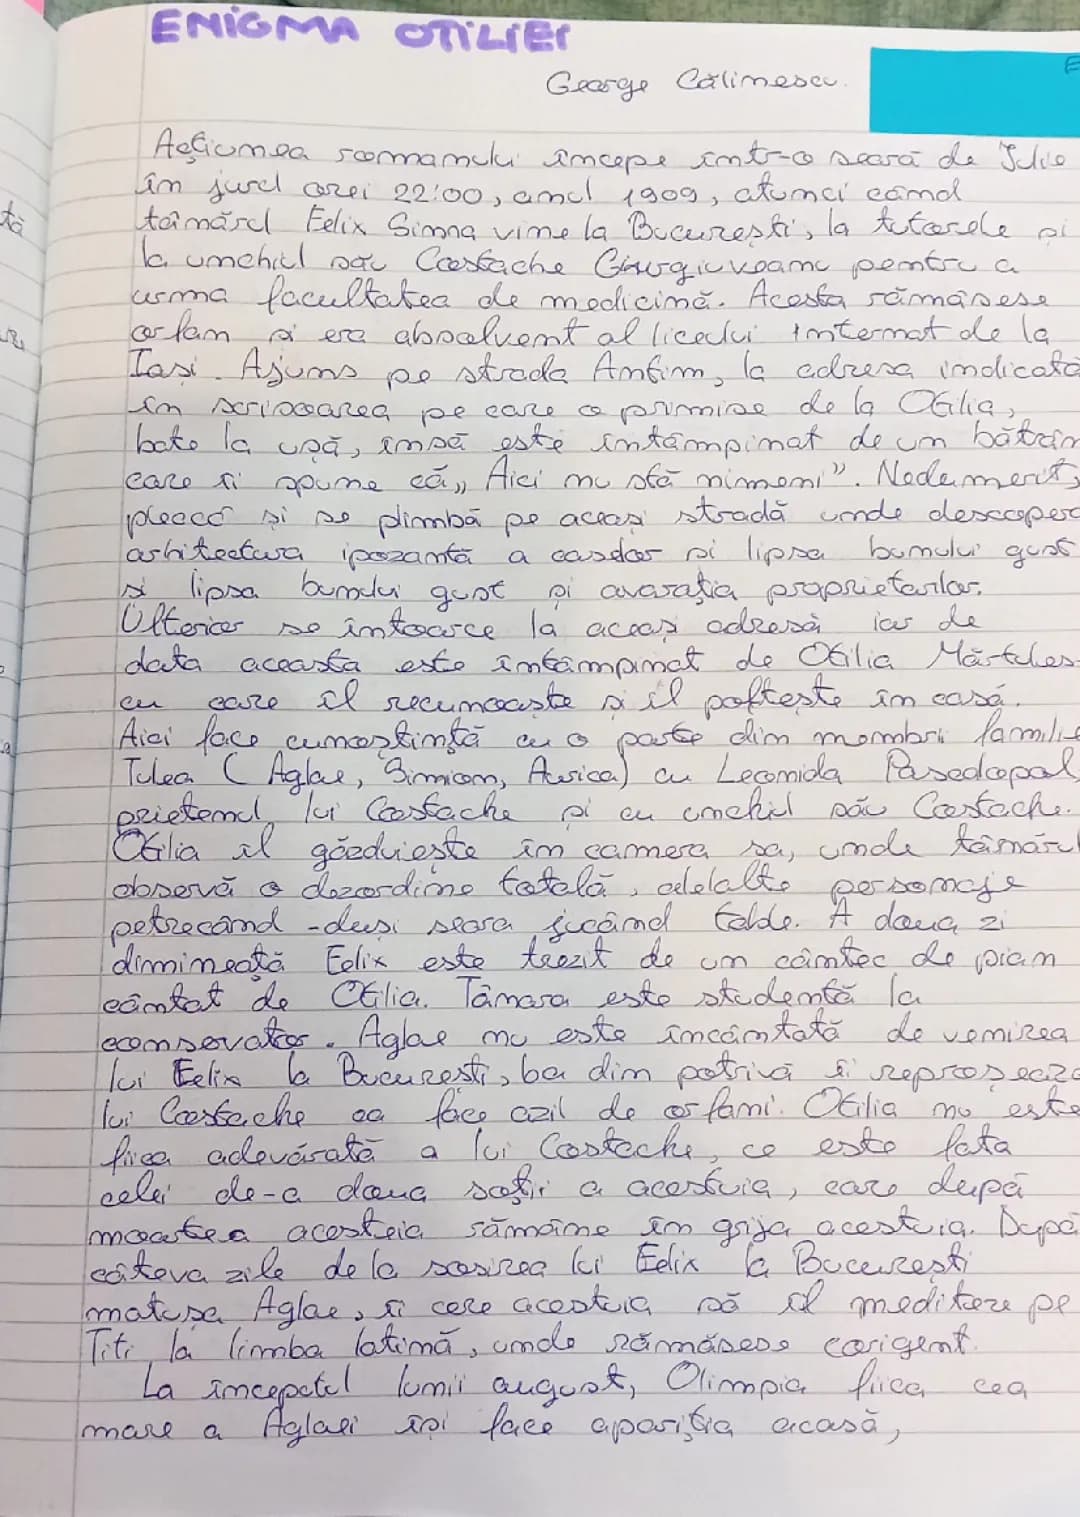 ENIGMA OTILIEI
George Călinescu.
Acțiunea romanului începe într-o seară de Iulie
în jurul orei 22:00, anul 1909, atunci când
tânărul Felix Simna vine la București, la tutorele și
la unchiul său Costache Giurgiuveanu pentru a
urma facultatea de medicină. Acesta rămăsese
orfan și era absolvent al liceului Internat de la
Iași. Ajuns pe strada Antim, la adresa indicată
în scrisoarea pe care o primise de la Otilia,
bate la ușă, însă este întâmpinat de un bătrân
care îi spune că „Aici nu stă nimeni”. Nedumerit,
pleacă și se plimbă pe aceași stradă unde descoperă
arhitectura ipozantă a caselor și lipsa bunului gust
și lipsa bunului gust și avarația proprietarilor.
Ulterior se întoarce la aceași adresă iar de
data aceasta este întâmpinat de Otilia Mărcules-
cu care îl recunoaște și îl poftește în casă.
Aici face cunoștință cu o parte din membrii familie
Tulea (Aglae, Simion, Aurica) cu Leonida Pascalopol,
prietenul lui Costache și cu unchiul său Costache.
Otilia îl găzduiește în camera sa, unde tânărul
observă o dezordine totală, celelalte personaje
petrecând-uși seara jucând table. A doua zi
dimineață Felix este trezit de un cântec de pian
cântat de Otilia. Tânara este studentă la
conservator. Aglae nu este încântată de venirea
lui Felix la București, ba din potrivă îi reproșează
lui Costache ca face azil de orfani. Otilia nu este
fiica adevărată a lui Costache, ce este fata
celei de-a doua soții a acestuia, care după
moartea acesteia rămâne în grija acestuia. După
câteva zile de la sosirea lui Felix la București
matușa Aglae, îi cere acestuia să îl mediteze pe
Titi la limba latină, unde rămăsese corigent.
La începutul lunii august, Olimpia fiica cea
mare a Aglaei își face apariția acasă,